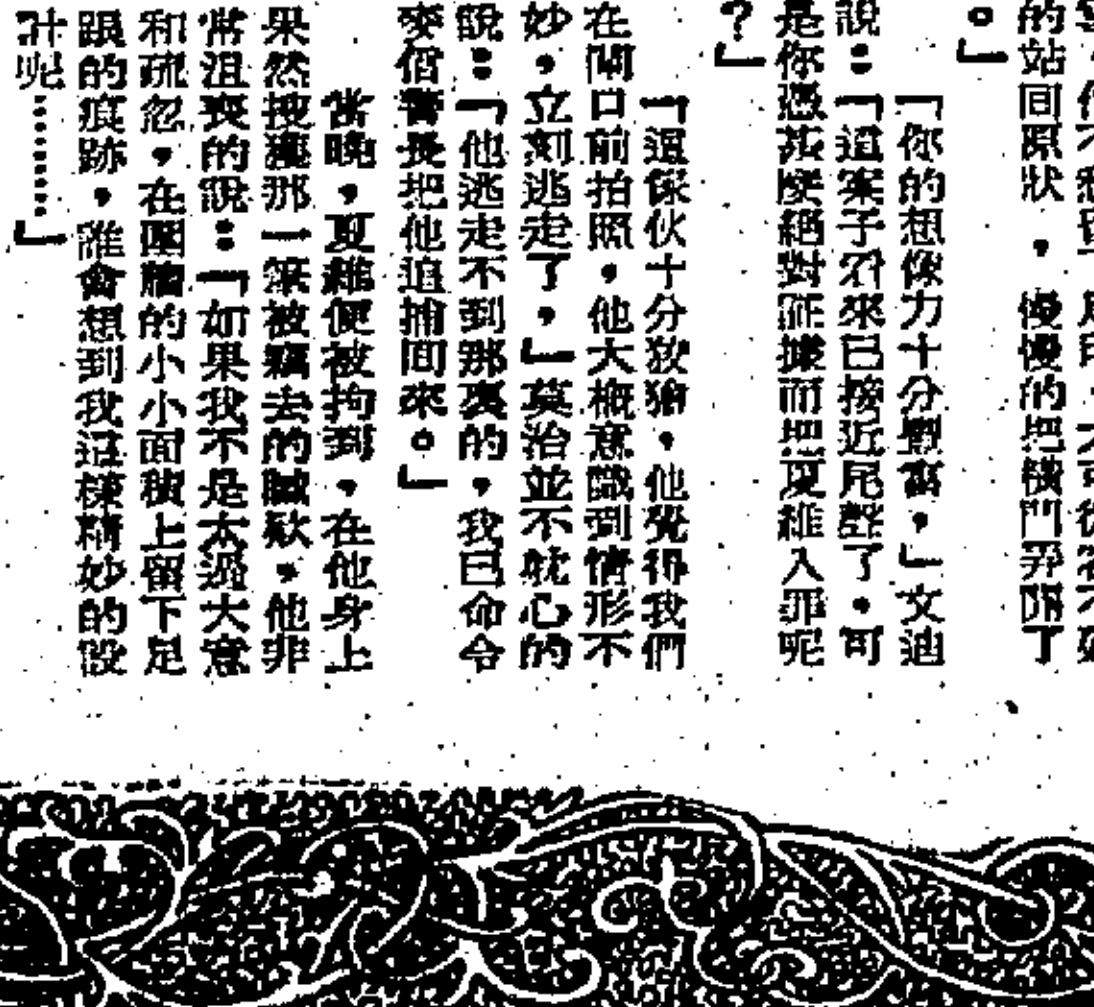 的站回原狀，慢慢的把橫門弄開了
。」
「你的想像力十分豐富，」文迪
說：「這案子看來已接近尾聲了。可
是你憑甚麼絕對証據而把夏維入罪呢
？」
「這傢伙十分狡猾，他覺得我們
在閘口前拍照，他大概意識到情形不
妙，立刻逃走了，」莫治並不躭心的
說：「他逃走不到那裏的，我已命令
麥偕警長把他追捕回來。」
當晚，夏維便被拘到，在他身上
果然搜獲那一筆被竊去的贓欵，他非
常沮喪的說：「如果我不是太過大意
和疏忽，在圍牆的小小面積上留下足
跟的痕跡，誰會想到我這樣精妙的設
計呢………」